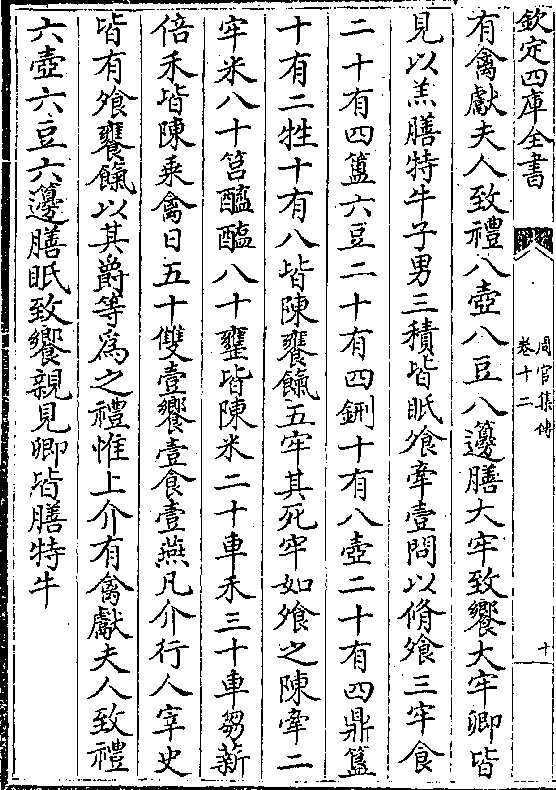 欽定四庫全書
周官集傳
卷十二
十
有禽獻夫人致禮八壺八豆八籩膳大牢致饗大牢卿皆
見以羔膳特牛子男三積皆眡飧牽壹問以脩飧三牢食
二十有四簠六豆二十有四鉶十有八壺二十有四鼎簋
十有二牲十有八皆陳饔餼五牢其死牢如飧之陳牽二
牢米八十筥醯醢八十罋皆陳米二十車禾三十車芻薪
倍禾皆陳乘禽日五十雙壹饗壹食壹燕凡介行人宰史
皆有飧饔餼以其爵等為之禮惟上介有禽獻夫人致禮
六壺六豆六籩膳眡致饗親見卿皆膳特牛